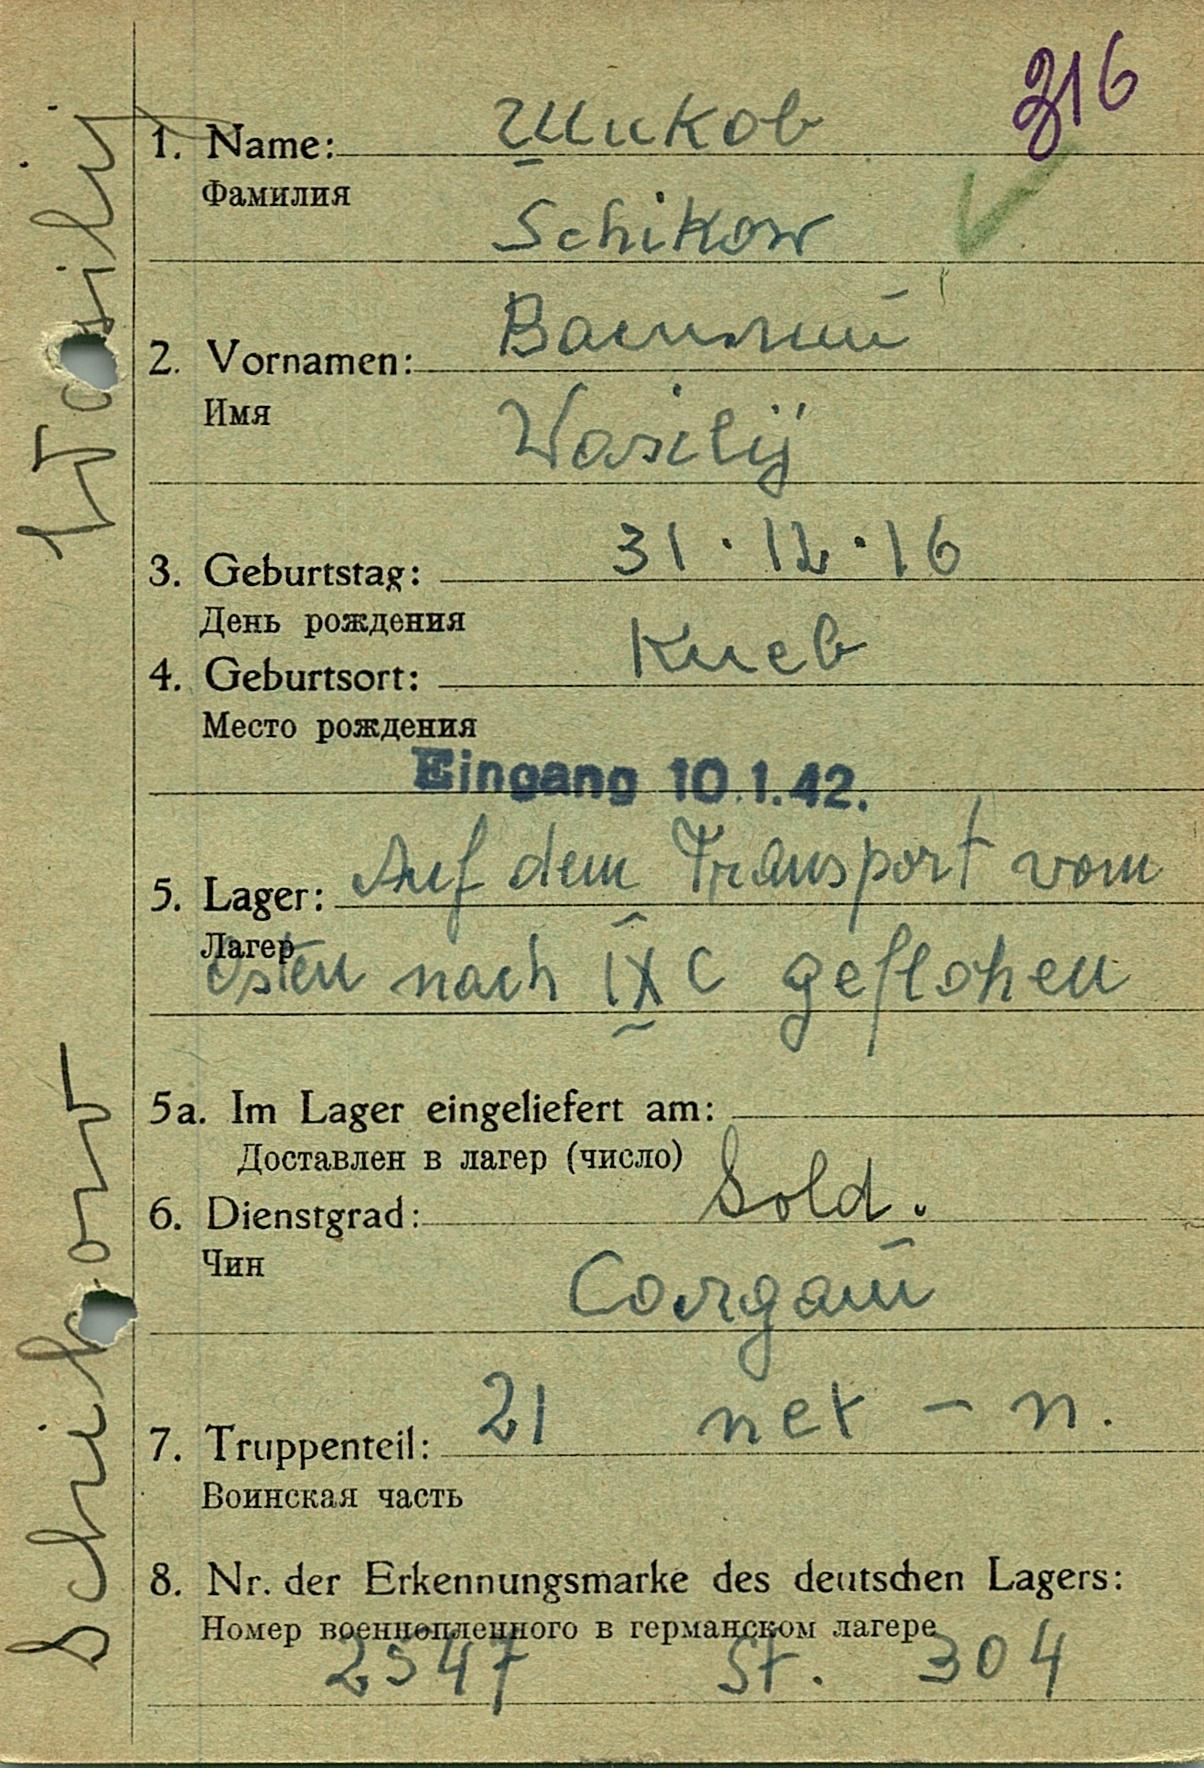 316
1. Name: Шиков
Фамилия
Schikow
2. Vornamen: Василий
Имя
Wasilij
3. Geburtstag: 31.12.16
День рождения
4. Geburtsort: Киев
Место рождения
Eingang 10.1.42.
5. Lager: Auf dem Transport vom
Лагер
Osten nach IX C geflohen
5a. Im Lager eingeliefert am:
Доставлен в лагер (число)
6. Dienstgrad: Sold.
Чин
Солдат
7. Truppenteil: 21 пех – п.
Воинская часть
8. Nr. der Erkennungsmarke des deutschen Lagers:
Номер военнопленного в германском лагере
2547 St. 304
Schikow Wasilij